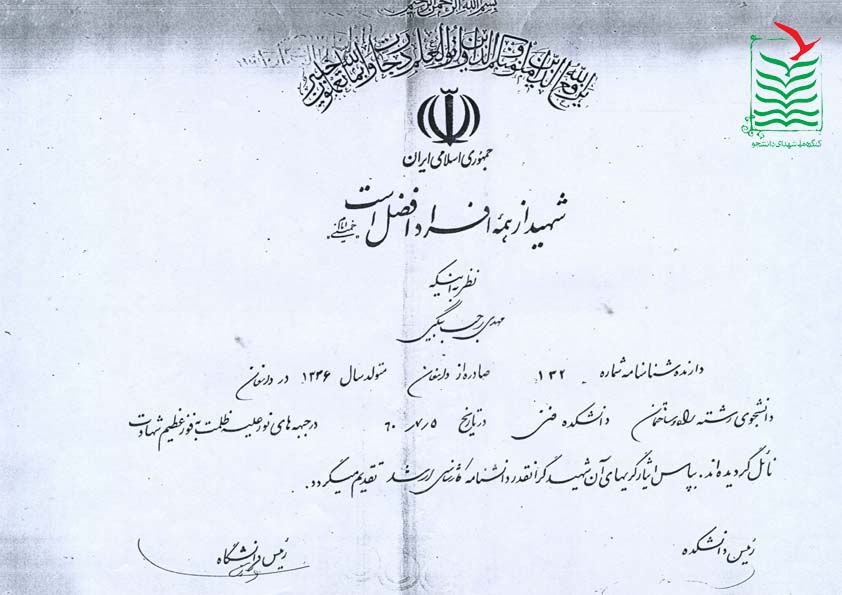 بسم الله الرحمن الرحیم
یرفع الله الذین آمنوا منکم والذین اوتوا العلم درجات والله بما تعملون خبیر
کنگره ملی شهدای دانشجو
جمهوری اسلامی ایران
شهید از همه افراد افضل است
امام خمینی
نظر به اینکه
مهدی رجب بیگی
دارنده شناسنامه شماره ۱۳۲ صادره از دامغان متولد سال ۱۳۳۶ در دامغان
دانشجوی رشته راه و ساختمان دانشکده فنی در تاریخ ۵ر۷ر۶۰ در جبهه های نور علیه ظلمت به فوز عظیم شهادت
نائل گردیده اند. بپاس ایثارگریهای آن شهید گرانقدر دانشنامه کارشناسی ارشد تقدیم میگردد.
رئیس دانشکده
رئیس دانشگاه